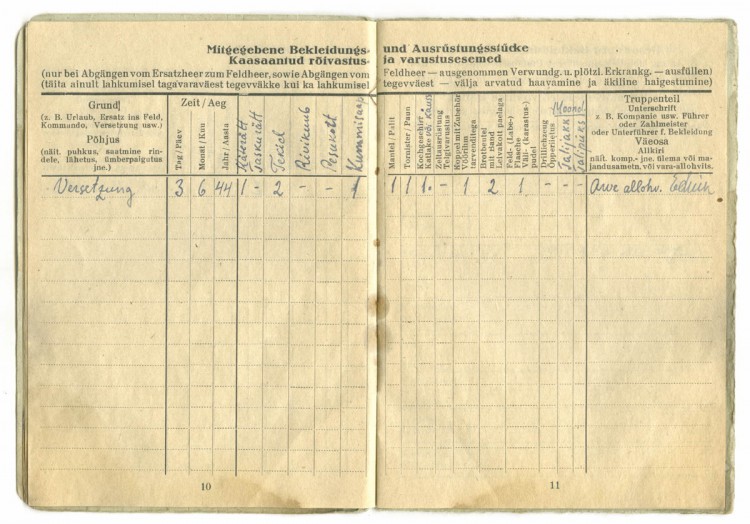 Mitgegebene Bekleidungs-
Kaasaantud rõivastus-
(nur bei Abgängen vom Ersatzheer zum Feldheer, sowie Abgängen vom
(täita ainult lahkumisel tagavaraväest tegevväkke kui ka lahkumisel
Grund
(z. B. Urlaub, Ersatz ins Feld,
Kommando, Versetzung usw.)
Põhjus
(näit. puhkus, saatmine rin-
dele, lähetus, ümberpaigutus
jne.)
Zeit / Aeg
Tag / Päev
Monat / Kuu
Jahr / Aasta
Käterätt
Taskurätt
Tekid
Riivikuub
Kummisaap
Versetzung 3 6 44 1 - 2 - - 1
10
und Ausrüstungsstücke
ja varustusesemed
Feldheer — ausgenommen Verwundg. u. plötzl. Erkrankg. — ausfüllen)
tegevväest — välja arvatud haavamine ja äkiline haigestumine)
Mantel / Palit
Tornister / Paun
Kochgeschir.
Katlake
Zeltausrüstung
Telgivarustus
Koppel mit Zubehör
Vöörihm
tarvenditega
Brotbeutel
mit Band
Leivakott paelaga
Feld- (Labe-)
Flasche
Väli- (karastus-)
pudel
Drillichzeug
Õpperiietus
Truppenteil
Unterschrift
z B. Kompanie usw. Führer
oder Zahlmeister
oder Unterführer f. Bekleidung
Väeosa
Allkiri
näit. komp.- jne. ülema või ma-
jandusametn. või vara-allohvits.
1 1 1. - 1 2 1 - - - Arve allohv.
11